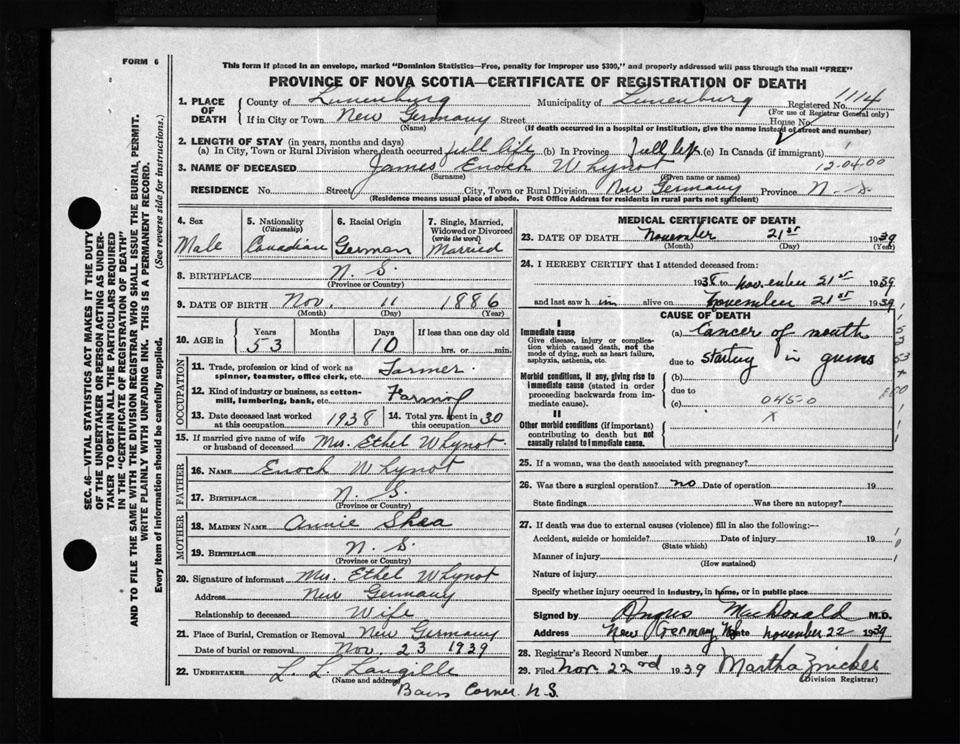 FORM 6
This form if placed in an envelope, marked "Dominion Statistics—Free, penalty for improper use $300," and properly addressed will pass through the mail "FREE"
PROVINCE OF NOVA SCOTIA—CERTIFICATE OF REGISTRATION OF DEATH
1. PLACE OF DEATH County of Lunenburg Municipality of Lunenburg Registered No. 1114
(For use of Registrar General only)
If in City or Town New Germany Street House No.
(Name) (If death occurred in a hospital or institution, give the name instead of street and number)
2. LENGTH OF STAY (in years, months and days)
(a) In City, Town or Rural Division where death occurred full life (b) In Province full life (c) In Canada (if immigrant)
3. NAME OF DECEASED James Enoch Whynot 12.04.00
(Surname) (Given name or names)
RESIDENCE No. Street City, Town or Rural Division New Germany Province N.S.
(Residence means usual place of abode. Post Office Address for residents in rural parts not sufficient)
SEC. 46—VITAL STATISTICS ACT MAKES IT THE DUTY
OF THE UNDERTAKER OR PERSON ACTING AS UNDER-
TAKER TO OBTAIN ALL THE PARTICULARS REQUIRED
IN THE "CERTIFICATE OF REGISTRATION OF DEATH"
AND TO FILE THE SAME WITH THE DIVISION REGISTRAR WHO SHALL ISSUE THE BURIAL PERMIT.
WRITE PLAINLY WITH UNFADING INK. THIS IS A PERMANENT RECORD.
Every item of Information should be carefully supplied. (See reverse side for instructions.)
4. Sex Male
5. Nationality (Citizenship) Canadian
6. Racial Origin German
7. Single, Married, Widowed or Divorced (write the word) Married
8. BIRTHPLACE N.S.
(Province or Country)
9. DATE OF BIRTH Nov. 11 1886
(Month) (Day) (Year)
10. AGE in Years 53 Months Days 10 If less than one day old hrs. or min.
OCCUPATION
11. Trade, profession or kind of work as spinner, teamster, office clerk, etc. Farmer
12. Kind of industry or business, as cotton-mill, lumbering, bank, etc. Farming
13. Date deceased last worked at this occupation 1938 14. Total yrs. spent in this occupation 30
15. If married give name of wife or husband of deceased Mrs. Ethel Whynot
FATHER
16. NAME Enoch Whynot
17. BIRTHPLACE N.S.
(Province or Country)
MOTHER
18. MAIDEN NAME Annie Shea
19. BIRTHPLACE N.S.
(Province or Country)
20. Signature of informant Mrs. Ethel Whynot
Address New Germany
Relationship to deceased Wife
21. Place of Burial, Cremation or Removal New Germany
Date of burial or removal Nov. 23 1939
22. UNDERTAKER L. L. Langille
(Name and address)
Corner N.S.
MEDICAL CERTIFICATE OF DEATH
23. DATE OF DEATH November 21st 1939
(Month) (Day)
24. I HEREBY CERTIFY that I attended deceased from:
to November 21st 1939
and last saw him alive on November 21st 1939
CAUSE OF DEATH
I
Immediate cause (a) Cancer of mouth
Give disease, injury or complication which caused death, not the mode of dying, such as heart failure, asphyxia, asthenia, etc.
due to starting in gums
Morbid conditions, if any, giving rise to immediate cause (stated in order proceeding backwards from immediate cause).
(b)
due to
(c) 0450
II
Other morbid conditions (if important) contributing to death but not causally related to immediate cause. X
25. If a woman, was the death associated with pregnancy?
26. Was there a surgical operation? no Date of operation 19
State findings Was there an autopsy?
27. If death was due to external causes (violence) fill in also the following:—
Accident, suicide or homicide? Date of injury 19
(State which)
Manner of injury
(How sustained)
Nature of injury
Specify whether injury occurred in industry, in home, or in public place
Signed by Angus MacDonald M.D.
Address New Germany NS Date November 22 1939
28. Registrar's Record Number
29. Filed Nov. 22nd 1939 Martha Zwicker
(Division Registrar)